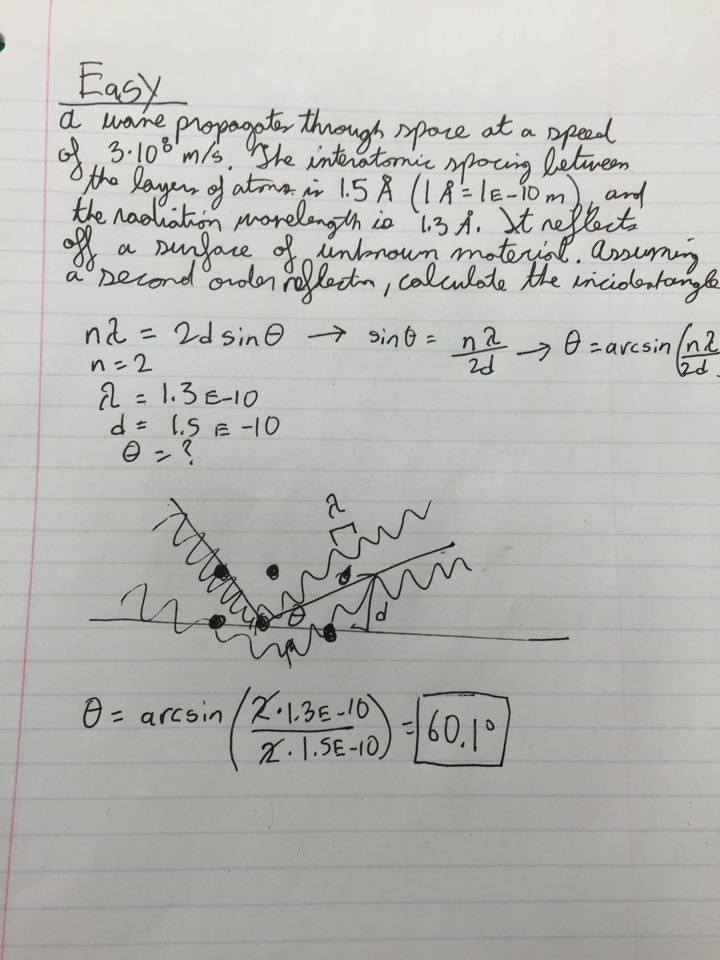 Easy
A wave propagates through space at a speed
of 3·10⁸ m/s. The interatomic spacing between
the layers of atoms is 1.5 Å (1 Å = 1E-10 m), and
the radiation wavelength is 1.3 Å. It reflects
off a surface of unknown material. Assuming
a second order reflectn, calculate the incident angle
nλ = 2d sinθ → sinθ = nλ/2d → θ = arcsin(nλ/2d
n = 2
λ = 1.3 E-10
d = 1.5 E-10
θ = ?
λ
θ
d
θ = arcsin(2·1.3E-10/2·1.5E-10) = 60.1°